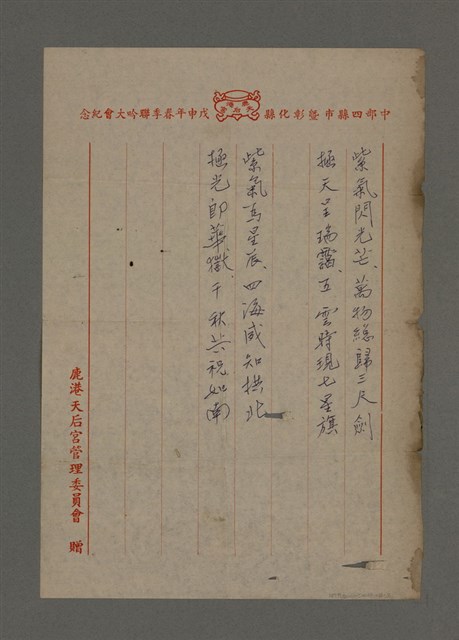 中部四縣市暨彰化縣 戊申年春季聯吟大會紀念
紫氣閃光芒、萬物總歸三尺劍
極天呈瑞靄、五雲時現七星旗
紫氣為星辰、四海咸知拱北
極光即華嶽、千秋共祝如南
鹿港天后宮管理委員會 贈